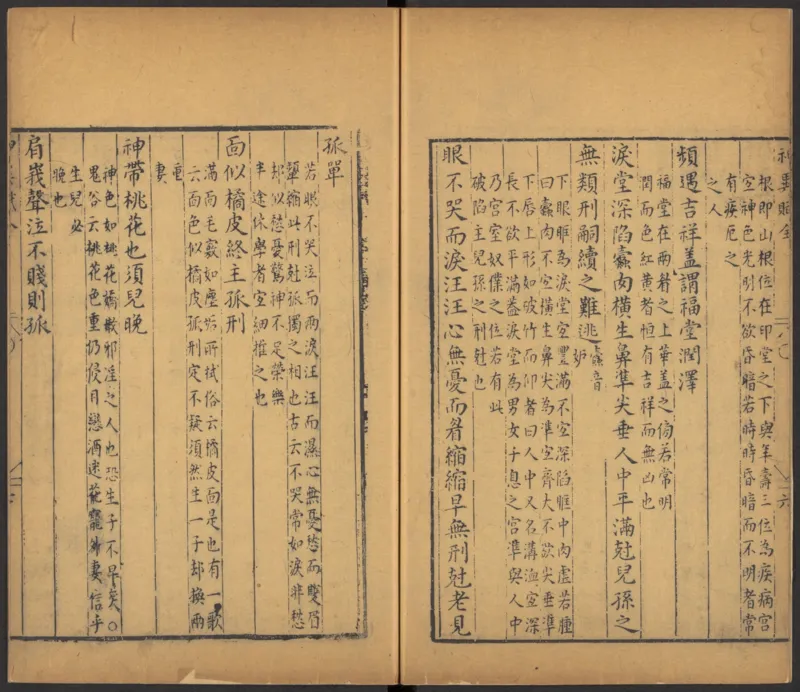 根即山根位在印堂之下與年壽三位為疾病宮
宜神色光明不欲昏暗若時時昏暗而不明者常
有疾厄之
之人
頻遇吉祥蓋謂福堂潤澤
福堂在兩眉之上華蓋之傍若常明
潤而色紅黃者恒有吉祥而無凶也
淚堂深陷蠹肉橫生鼻準尖垂人中平滿尅兒孫之
無類刑嗣續之難逃 蠹音妒
下眼眶為淚堂宜豐滿不宜深陷眶中肉虛若腫
曰蠹肉不宜橫生鼻尖為準宜齊大不欲尖垂準
下唇上形如破竹而仰者曰人中又名溝洫宜深
長不欲平滿蓋淚堂為男女子息之宮準與人中
乃宮室奴僕之位若有此
破陷主兒孫之刑尅也
眼不哭而淚汪汪心無憂而眉縮縮早無刑尅老見
孤單
若眼不哭泣而兩淚汪汪而濕心無憂愁而雙眉
顰縮此刑尅孤獨之相也古云不哭常如淚非愁
却似愁憂驚神不足榮樂
半途休學者宜細推之也
面似橘皮終主孤刑
滿面毛竅如塵垢所拭俗云橘皮面是也有一歌
云面色似橘皮孤刑定不疑須然生一子却換兩
重
妻
神帶桃花也須兒晚
神色如桃花嬌嫩邪淫之人也恐生子不早矣〇
鬼谷云桃花色重仍侵目戀酒迷花寵外妻信乎
生兒必
晚也
肩峩聲泣不賤則孤